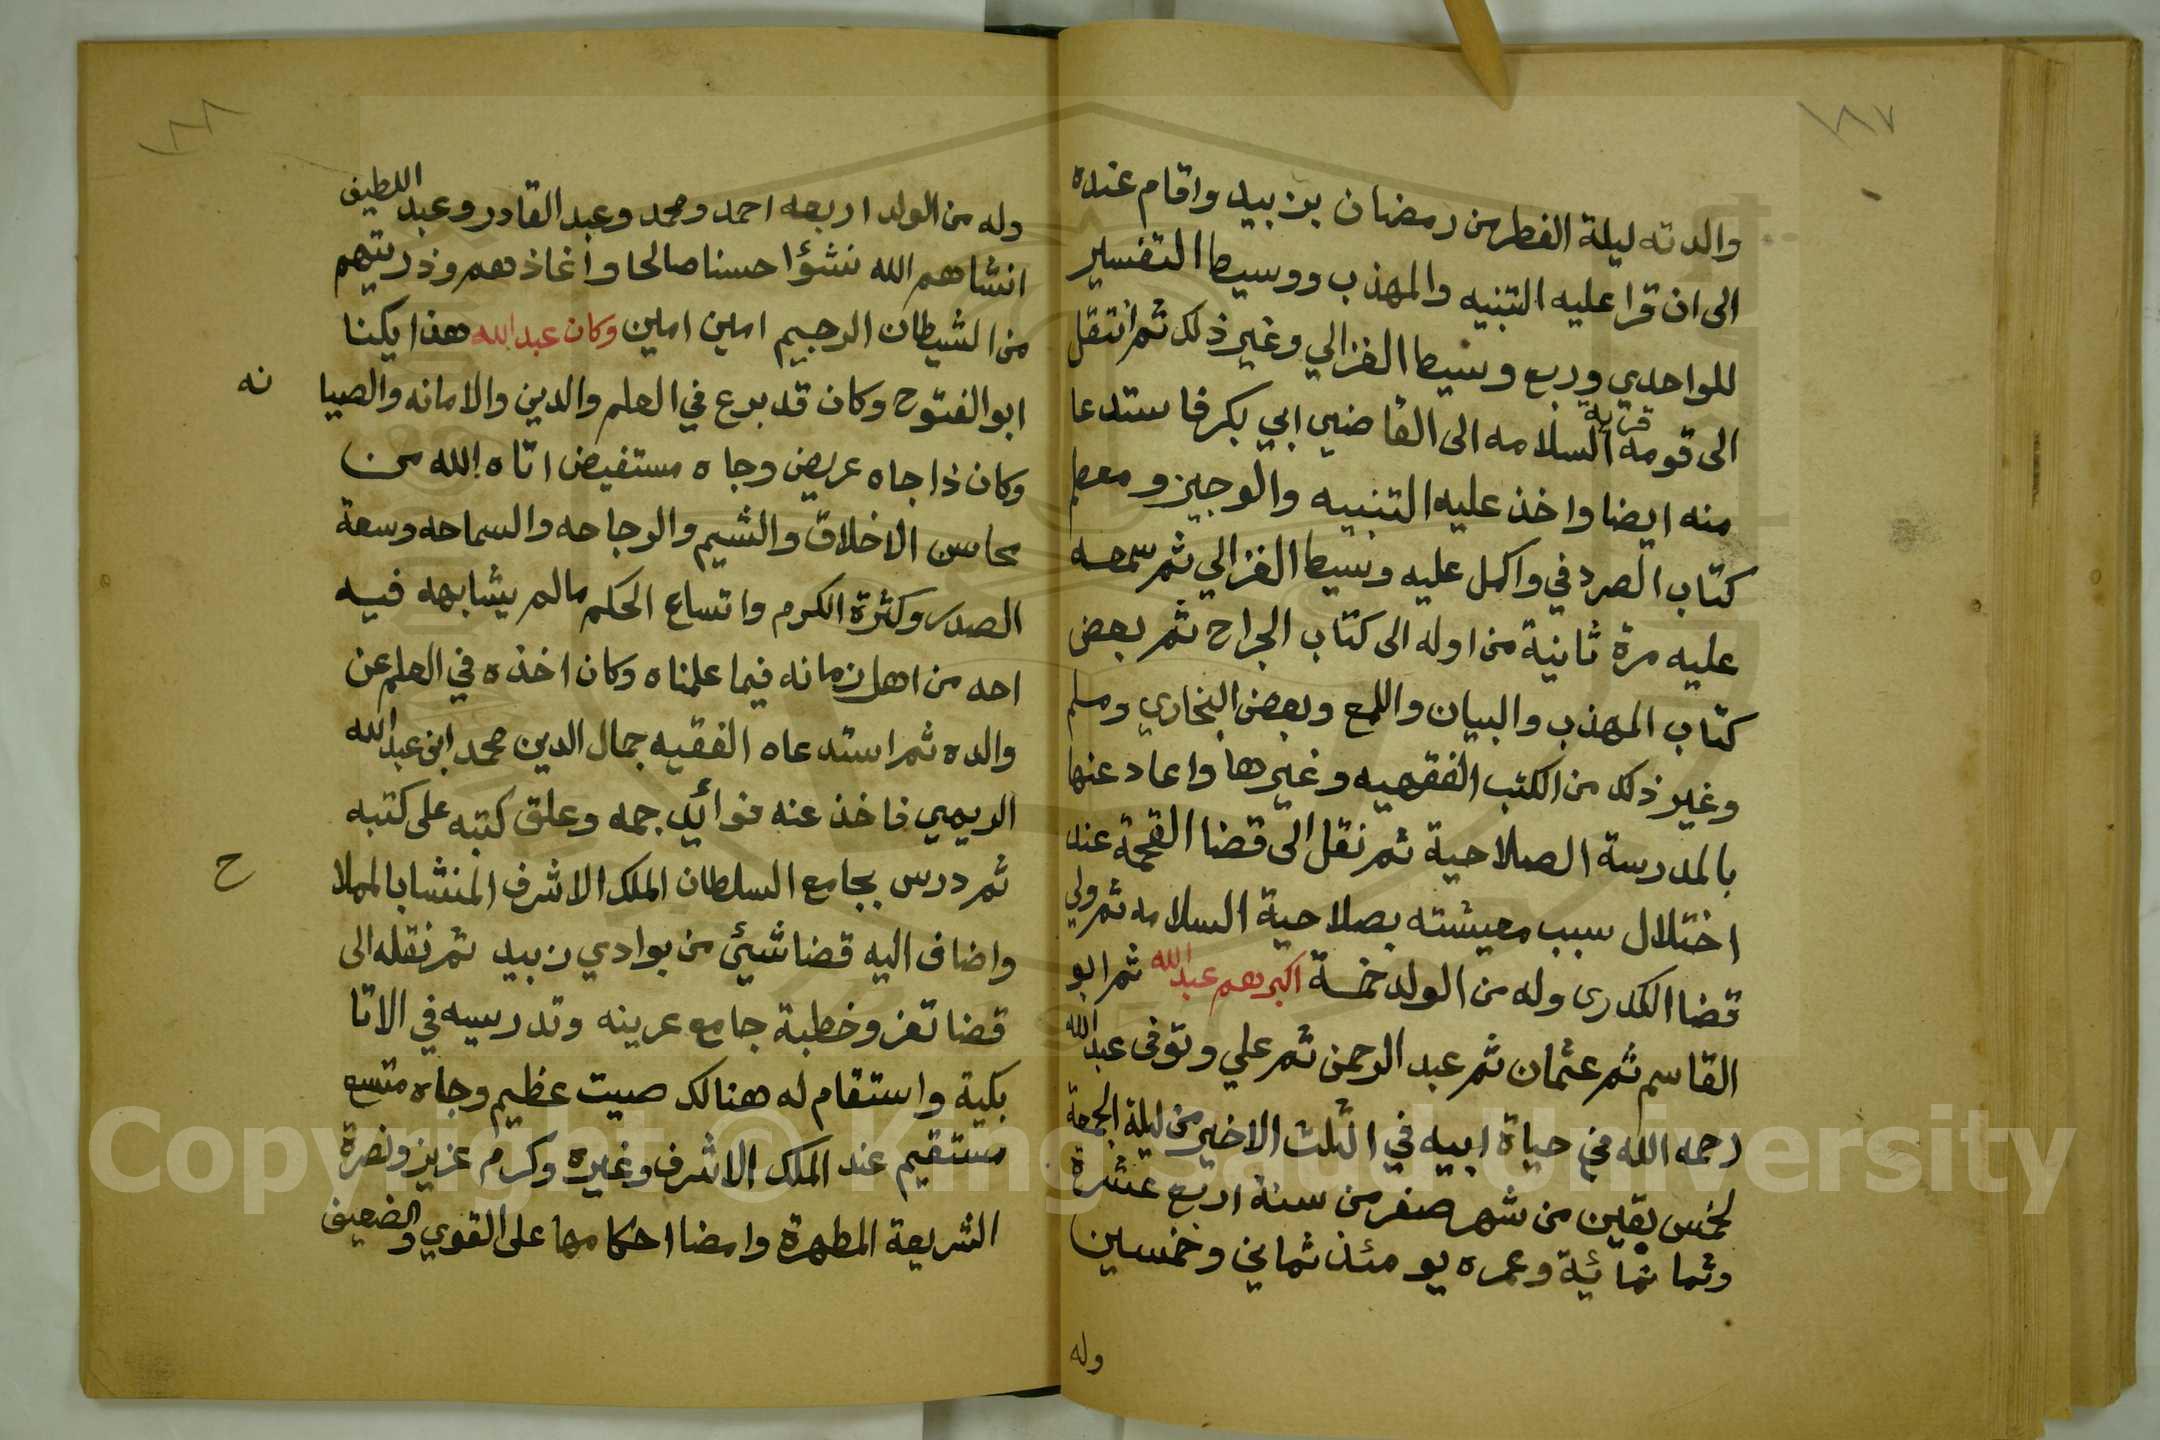 ١٨٧
والدته ليلة الفطر من رمضان بزبيد واقام عنده
الى ان قرا عليه التنبيه والمهذب ووسيط التفسير
للواحدي وربع وسيط الغزالي وغير ذلك ثم انتقل
الى قومه قرية السلامه الى القاضي ابي بكر فاستدعا
منه ايضا واخذ عليه التنبيه والوجيز ومعظم
كتاب الصردفي واكمل عليه وسيط الغزالي ثم سمعه
عليه مرة ثانية من اوله الى كتاب الجراح ثم بعض
كتاب المهذب والبيان واللمع وبعض البخاري ومسلم
وغير ذلك من الكتب الفقهيه وغيرها واعاد عنها
بالمدرسة الصلاحية ثم نقل الى قضا القحمة عند
اختلال سبب معيشته بصلاحية السلامه ثم ولي
قضا الكدرى وله من الولد خمسة اكبرهم عبد الله ثم ابو
القاسم ثم عثمان ثم عبد الرحمن ثم علي وتوفى عبد الله
رحمه الله في حياة ابيه في الثلث الاخير من ليلة الجمعة
لخمس بقين من شهر صفر من سنة اربع عشرة
وثمانمائة وعمره يومئذ ثماني وخمسين
وله
١٨٨
وله من الولد اربعه احمد ومحمد وعبد القادر وعبد اللطيف
انشاهم الله نشؤا حسنا صالحا واغاذهم وذريتهم
من الشيطان الرجيم امين امين وكان عبد الله هذا يكنا
ابو الفتوح وكان قد برع في العلم والدين والامانه والصيا
نه
وكان ذا جاه عريض وجاه مستفيض اتاه الله من
محاسن الاخلاق والشيم والرجاحه والسماحه وسعة
الصدر وكثرة الكرم واتساع الحكم مالم يشابهه فيه
احد من اهل زمانه فيما علمناه وكان اخذه في العلم عن
والده ثم استدعاه الفقيه جمال الدين محمد ابن عبد الله
الريمي فاخذ عنه فوائد جمه وعلق كتبه على كتبه
ثم درس بجامع السلطان الملك الاشرف المنشا بالمملا
ح
واضاف اليه قضا شيئ من بوادي زبيد ثم نقله الى
قضا تعز وخطبة جامع عرينه وتدرسيه في الاتا
بكية واستقام له هنالك صيت عظيم وجاه متسع
مستقيم عند الملك الاشرف وغيره وكرم عزيز ونصرة
الشريعة المطهرة وامضا احكامها على القوي والضعيف
Copyright © King Saud University